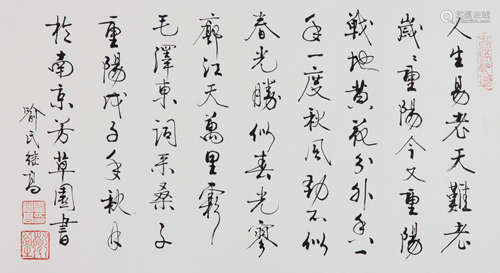 人生易老天難老
歲〻重陽今又重陽
戰地黄花分外香一
年一度秋風勁不似
春光勝似春光寥
廓江天萬里霜
毛澤東詞采桑子
重陽戊子年秋月
於南京芳草園書
喻氏继高